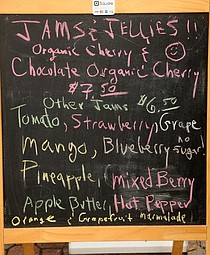 Square
JAMS & JELLIES !!
Organic Cherry &
Chocolate Organic Cherry
$7.50
Other Jams $6.50
Tomato, Strawberry, Grape
Mango, Blueberry no sugar
Pineapple, Mixed Berry
Apple Butter, Hot Pepper
Orange & Grapefruit marmalade